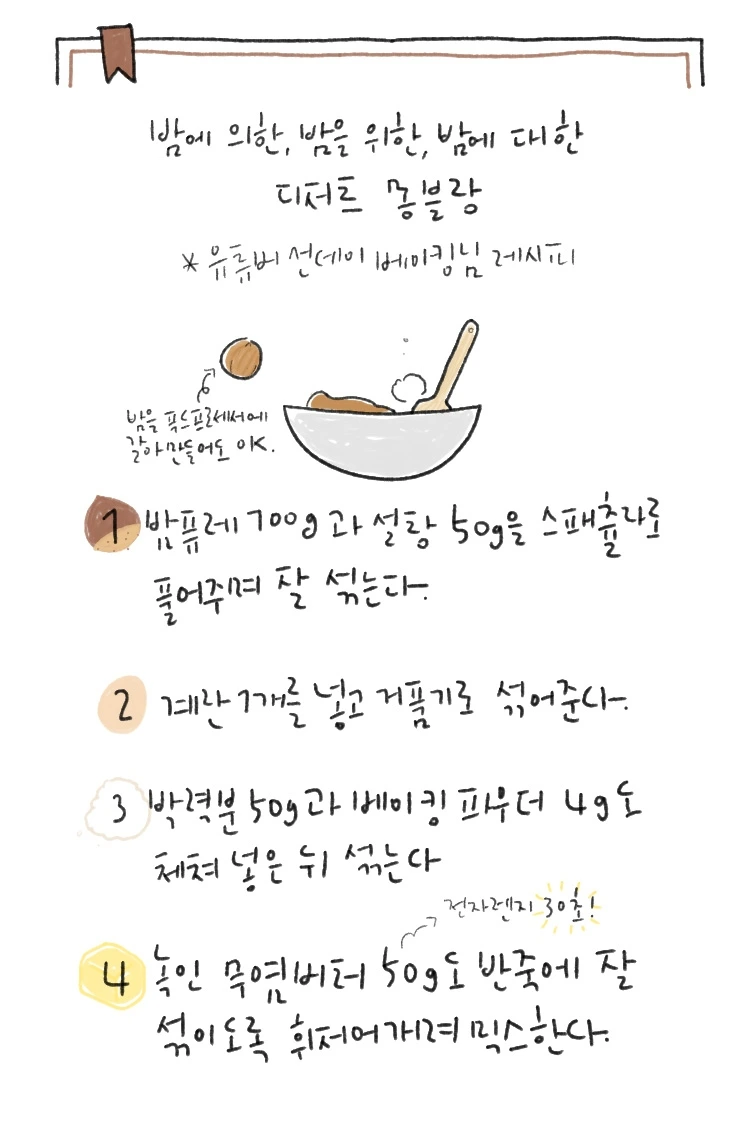 밤에 의한, 밤을 위한, 밤에 대한
디저트 몽블랑
* 유튜버 선데이 베이킹님 레시피
밤을 푸드프로세서에
갈아 만들어도 OK.
1 밤퓨레 700g과 설탕 50g을 스패츌라로
풀어주며 잘 섞는다.
2 계란 1개를 넣고 거품기로 섞어준다.
3 박력분 50g과 베이킹 파우더 4g도
체쳐 넣은 뒤 섞는다
전자렌지 30초!
4 녹인 무염버터 50g도 반죽에 잘
섞이도록 휘저어가며 믹스한다.